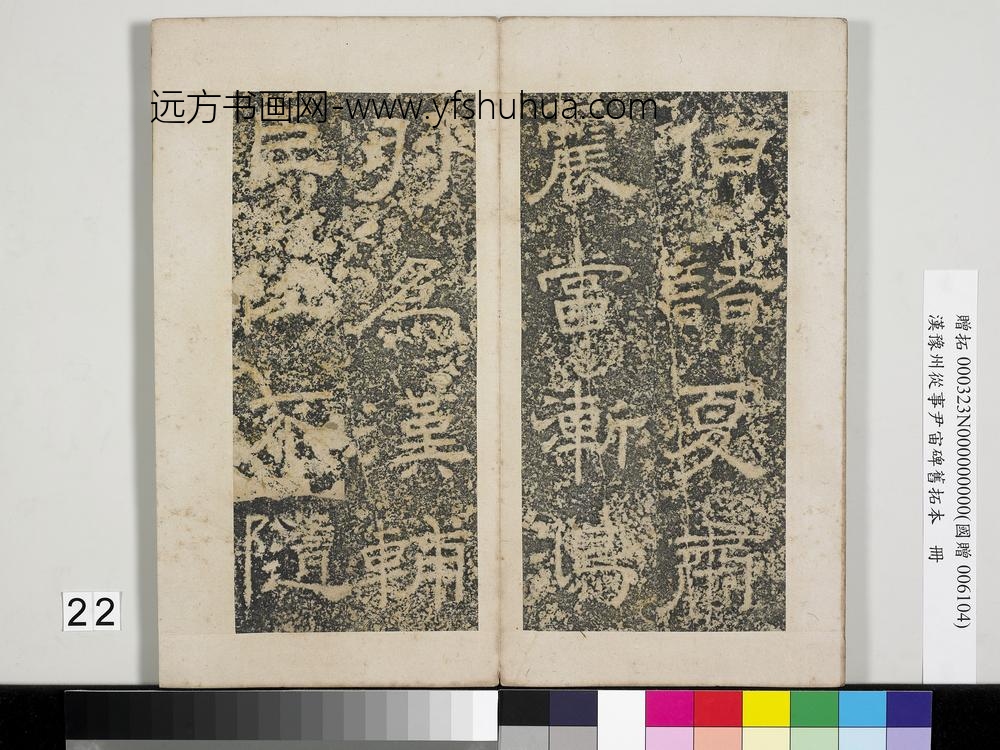 远方书画网-www.yfshuhua.com
伯諸夏肅
震當漸鴻
羽為漢輔
臣位不隨
贈拓 000323N000000000(國贈 006104)
漢豫州從事尹宙碑舊拓本 冊
22